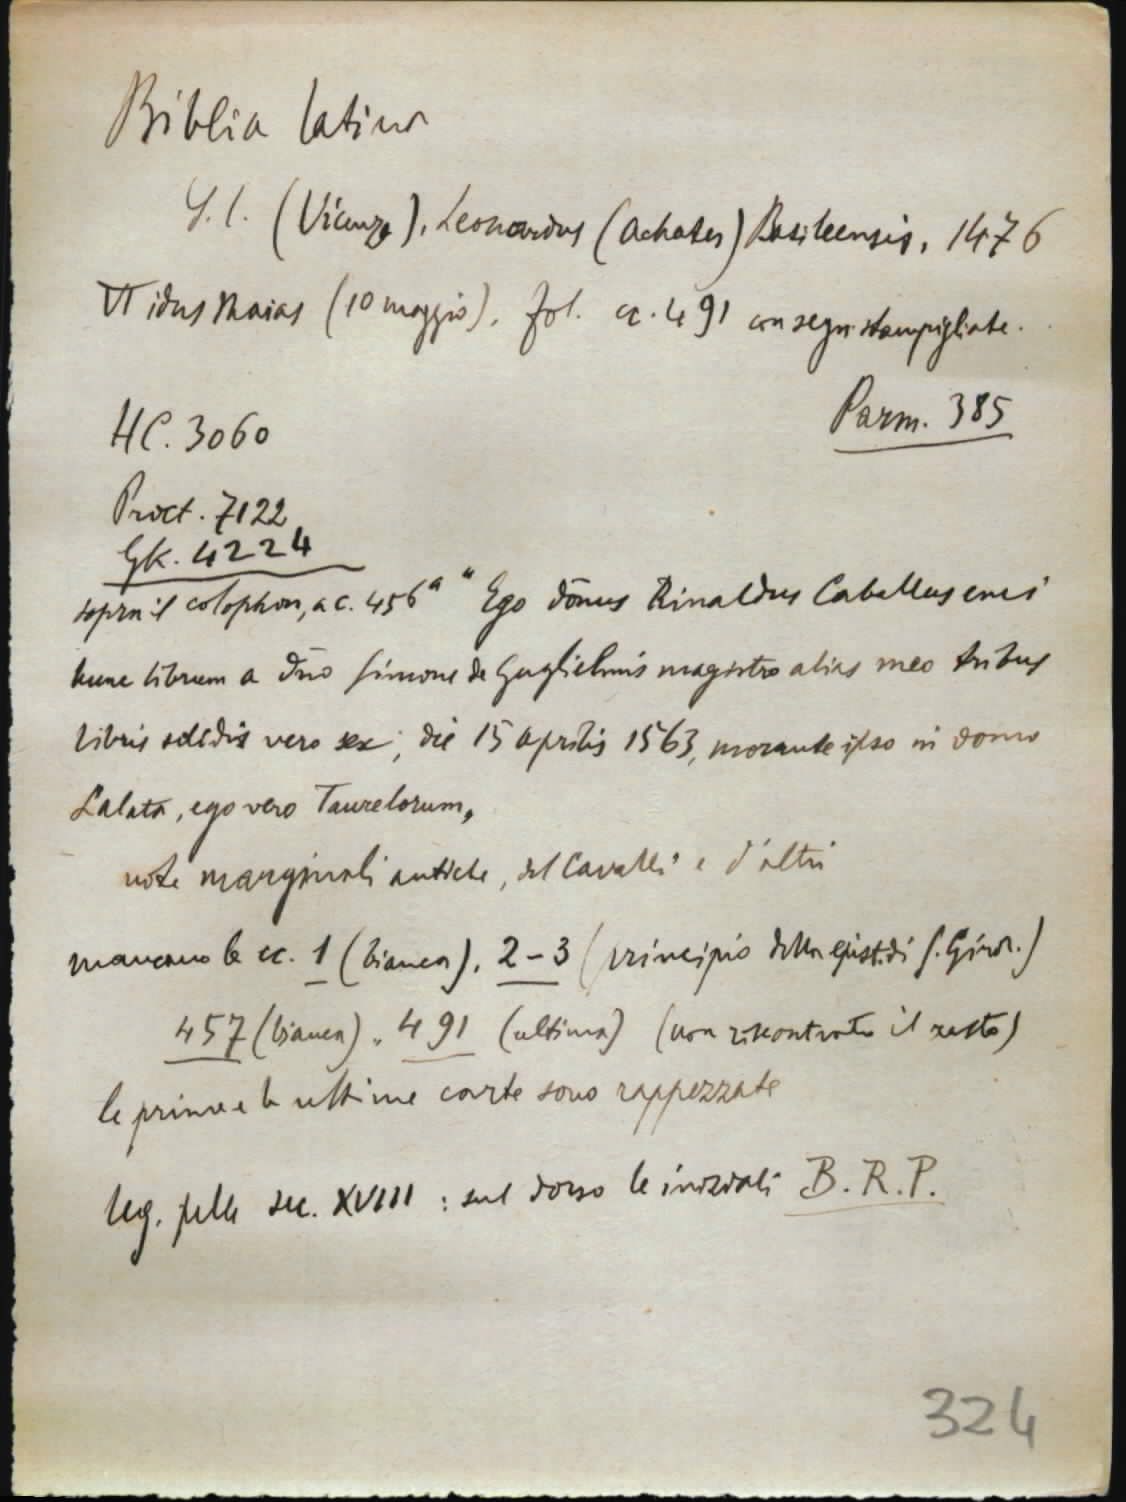 Biblia latina
S. l. (Vicenza), Leonardus (Achates) Basileensis, 1476
VI idus Maias (10 maggio), fol. cc. 491 con segn. stampigliate.
Parm. 385
HC. 3060
Proct. 7122
GK. 4224
sopra il colophon, a c. 456ª " Ego dōnus Rinaldus Caballus emi
hunc librum a dño Simone de Guglielmis magistro alias meo tribus
libris solidis vero sex, die 15 aprilis 1563, morante ipso in domo
Lalata, ego vero Taurelorum„
note marginali antiche, del Cavalli e d'altri
mancano le cc. 1 (bianca), 2-3 (principio della epist. di S. Girol.)
457 (bianca), 491 (ultima) (non riscontrato il resto)
le prime e le ultime carte sono rappezzate
leg. pelle sec. XVIII : sul dorso le iniziali B. R. P.
324